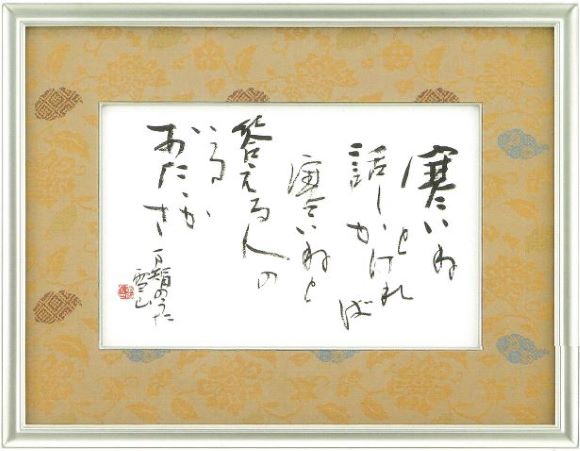 寒いね
と
話しかければ
寒いねと
答える人の
いる
あたたかさ
万智のうた
雪山